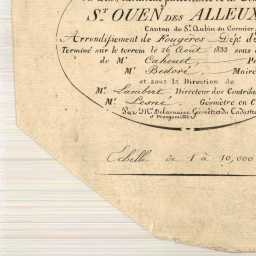 St. OUEN DES ALLEUX
Canton de St. Aubin du Cormier
Arrondissement de Fougères Dépt. d'
Terminé sur le terrein le 26 Août 1833 sous
de Mr. Cahouet, Pr
Mr. Bedoré Maire
et sous la Direction de
Mr. Lambert Directeur des Contrib
Mr. Lesné, Géomètre en C
Par Mr. Delaunaie Géomètre du Cadastre
Echelle de 1 à 10,000